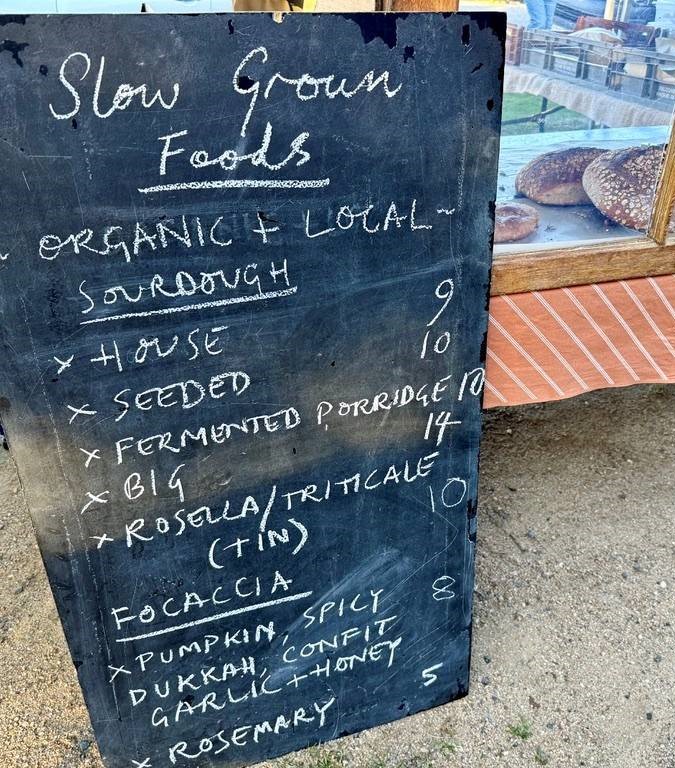 Slow Grown
Foods
ORGANIC + LOCAL ~
SOURDOUGH
x HOUSE 9
x SEEDED 10
x FERMENTED PORRIDGE 10
x BIG 14
x ROSELLA/TRITICALE
(TIN) 10
FOCACCIA
x PUMPKIN, SPICY 8
DUKKAH, CONFIT
GARLIC + HONEY
x ROSEMARY 5